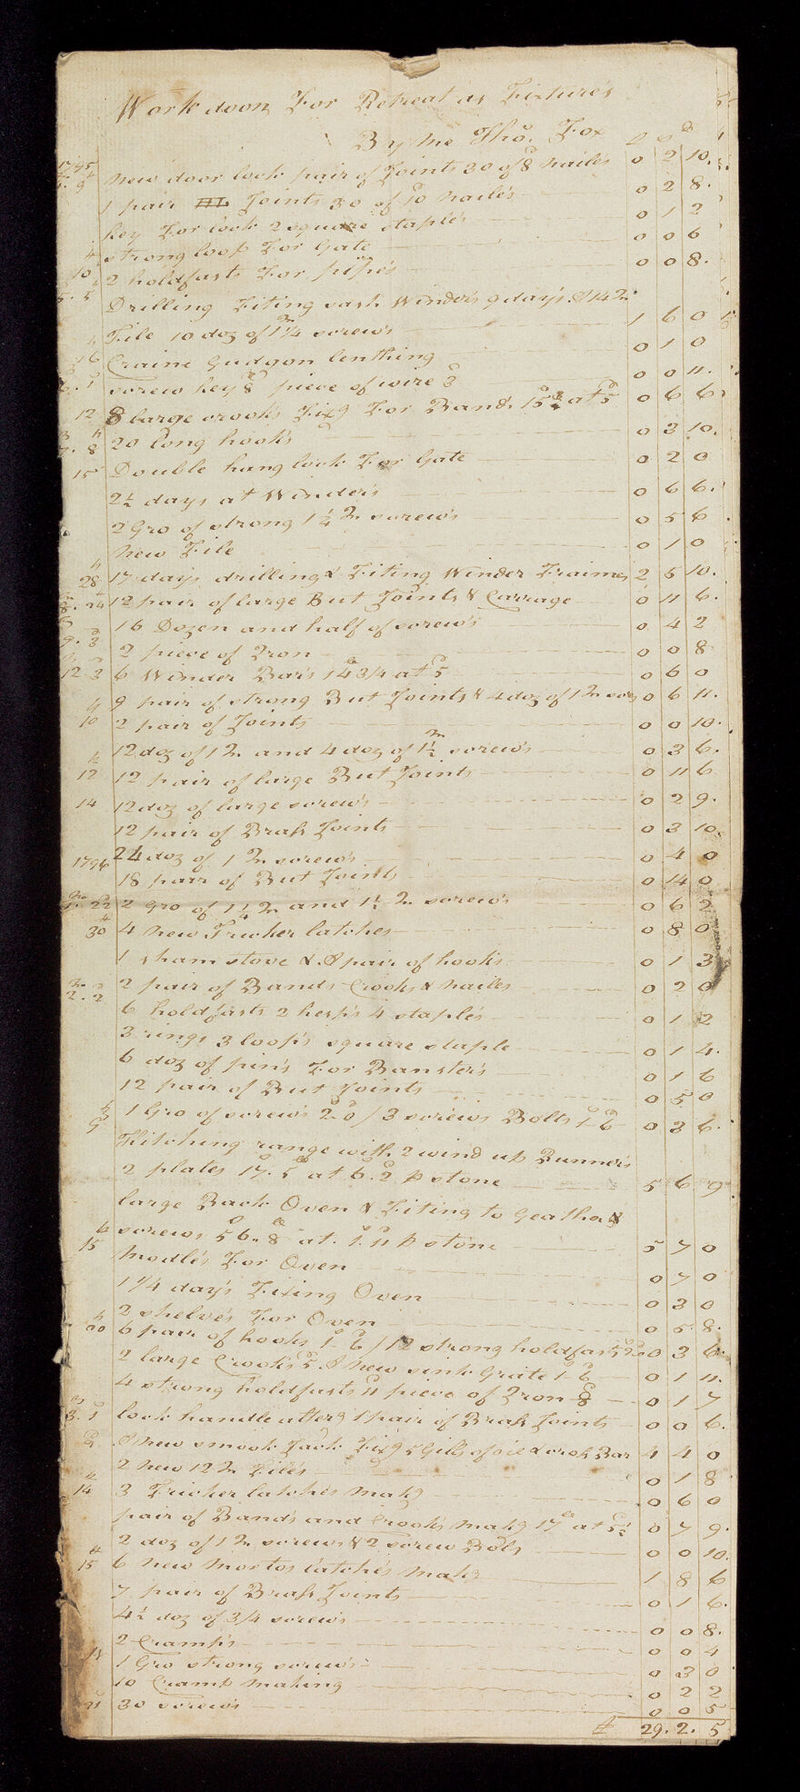 Work doon For Retreat as Fixtures
By me Tho. Fox
1795
new door lock pair of Joints 30 of 8 nailes 0 2 10
1 pair HL Joints 30 of 10 nailes 0 2 8
key For lock 2 square staples 0 1 2
strong loop For Gate 0 0 6
10 2 holdfasts For pipes 0 0 8
5. 5 Drilling Fiting sash Winders 9 days
File 10 doz of 1 1/4 screws 1 6 0
16 Craine Gudgon lenthing 0 1 0
screw key 8 piece of wire 3 0 0 11
12 8 large crooks Fixg For Bands 15 3/4 at 5 0 6 6
7. 8 20 long hooks 0 3 10
15 Double hang lock For Gate 0 2 0
2 1/2 days at Winders 0 6 6
2 Gro of strong 1 1/4 In screws 0 5 6
new File 0 1 0
28 17 days drilling & Fiting Winder Fraimes 2 5 10
8. 24 12 pair of large But Joints & Carrage 0 11 6
16 Dozen and half of screws 0 4 2
9. 3 2 piece of Iron 0 0 8
12 3 6 Winder Bars 14 3/4 at 5 0 6 0
9 pair of strong But Joints & 4 doz of 1 In 0 6 11
10 2 pair of Joints 0 0 10
12 doz of 1 In and 4 doz of 1 1/2 In screws 0 3 6
12 12 pair of large But Joints 0 11 6
14 12 doz of large screws 0 2 9
12 pair of Brass Joints 0 3 10
1796 24 doz of 1 In screws 0 4 0
18 pair of But Joints 0 14 0
22 2 Gro of 1 1/4 In and 1 1/2 In screws 0 6 2
30 4 new Fricker latches 0 8 0
1 sham stove & A pair of hooks 0 1 3
2. 2 2 pair of Bands Crooks & nailes 0 2 0
6 holdfasts 2 hesps 4 staples 0 1 2
3 rings 3 loops square staple 0 1 4
6 doz of pins For Banster's 0 1 6
12 pair of But Joints 0 5 0
9 1 Gro of screws 2-0 / 3 screws Bolts 1-6 0 3 6
Kitching range with 2 wind up Runners
2 plates 17. 5 at 6. 2 p stone 5 6 9
large Back Oven & Fiting to Geather &
screws 56. 8 at 1. 11 p stone 5 7 0
15 Modles For Oven 0 7 0
1 1/4 days Fixing Oven 0 3 0
2 shelves For Oven 0 5 8
20 6 pair of hooks 1-6 / 12 strong holdfasts 2-0 0 3 6
2 large Crooks 5. A new sink Grate 1-6 0 1 11
4 strong holdfasts 11 piece of Iron 8 0 1 7
3. 1 lock handle alterg 1 pair of Brass Joints 0 0 6
2 A new smook Jack Fixg 5 Gills of oil & crok Bar 4 4 0
2 new 12 In Files 0 1 8
14 3 Fricker latches makg 0 6 0
pair of Bands and Crooks makg 17 at 5 1/2 0 7 9
2 doz of 1 In screws & 2 screw Bolts 0 0 10
15 6 new Mortos latches makg 1 8 6
7 pair of Brass Joints 0 1 6
4 1/2 doz of 3/4 screws 0 0 8
2 Cramp's 0 0 4
1 Gro strong screws 0 3 0
10 Cramp making 0 2 2
21 30 screws 0 0 5
£ 29. 2. 5